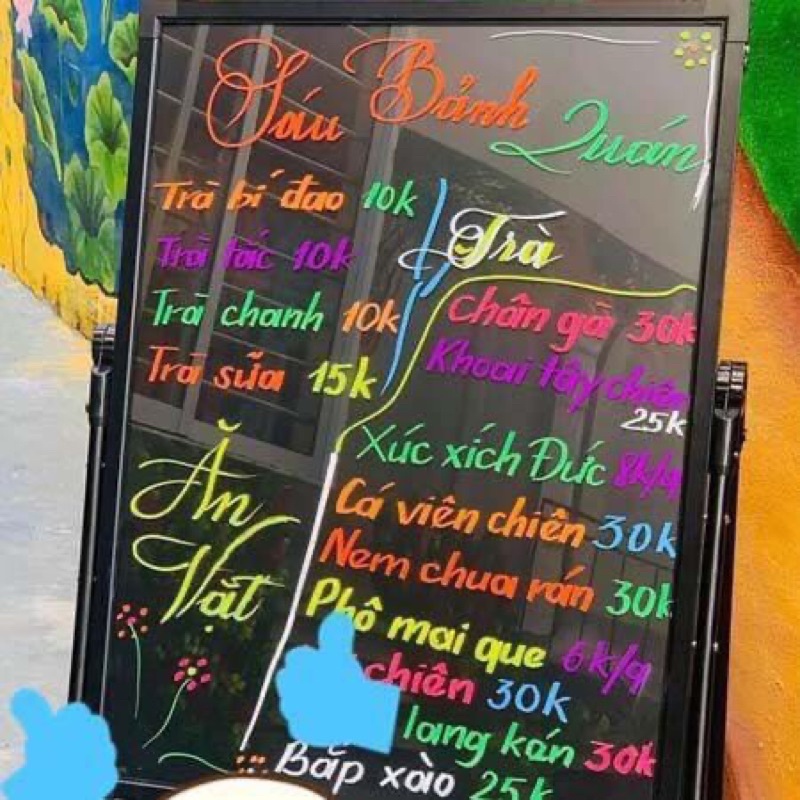 Sáu Bảnh Quán
Trà bí đao 10k
Trà tắc 10k
Trà chanh 10k
Trà sữa 15k
Trà
Chân gà 30k
Khoai tây chiên
25k
Xúc xích Đức 8k/q
Cá viên chiên 30k
Nem chua rán 30k
Phô mai que 6k/q
chiên 30k
lang kén 30k
Bắp xào 25k
Ăn
Vặt